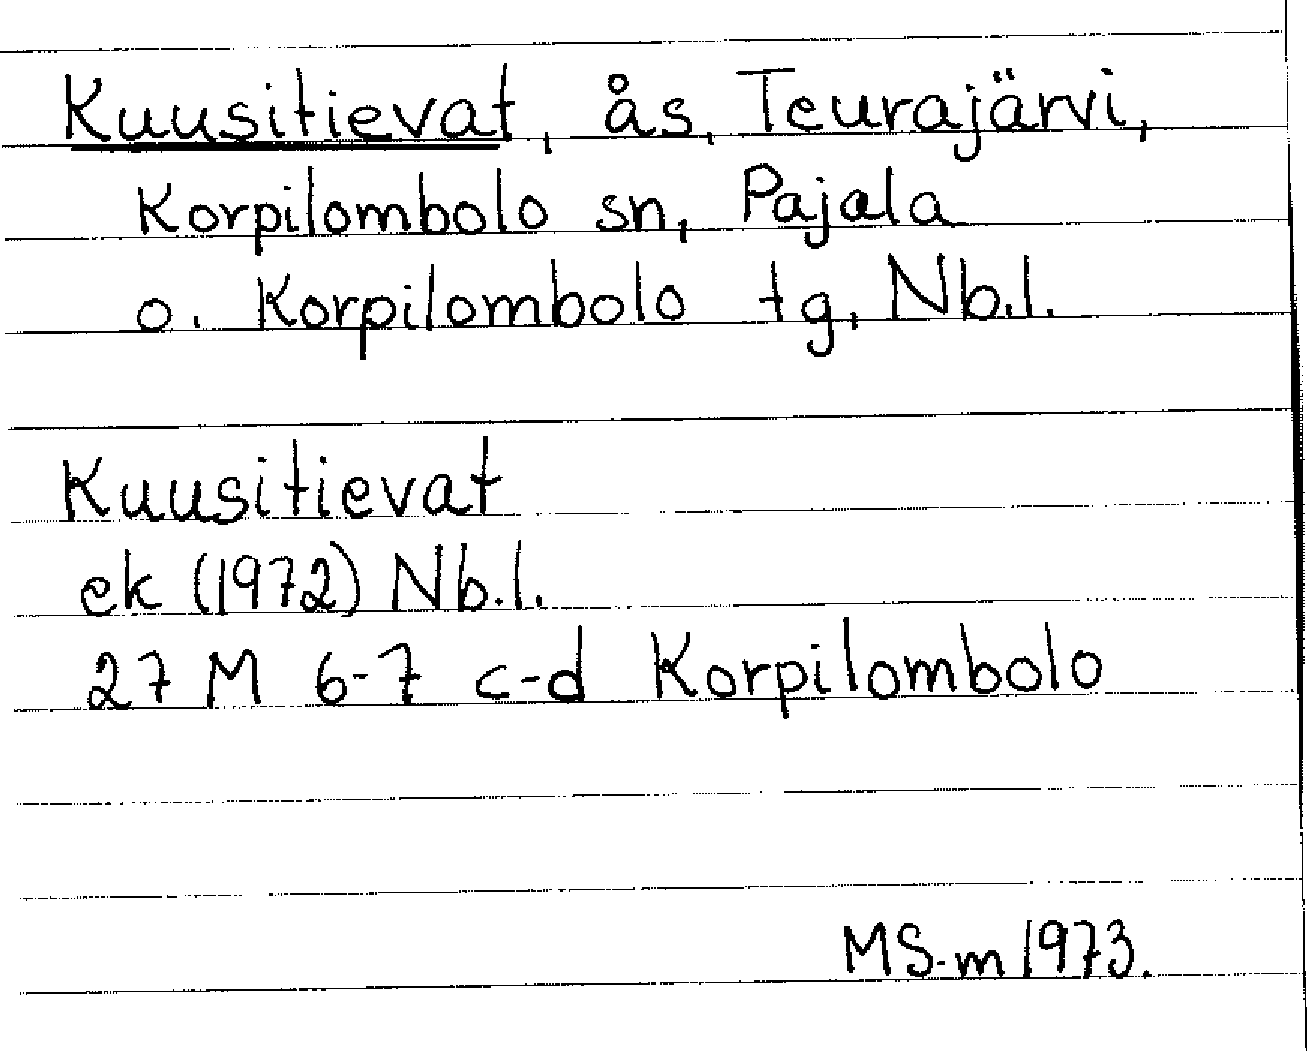 Kuusitievat, ås, Teurajärvi,
Korpilombolo sn, Pajala
o. Korpilombolo tg, Nb.l.
Kuusitievat
ek (1972) Nb.l.
27 M 6-7 c-d Korpilombolo
MS-m 1973.